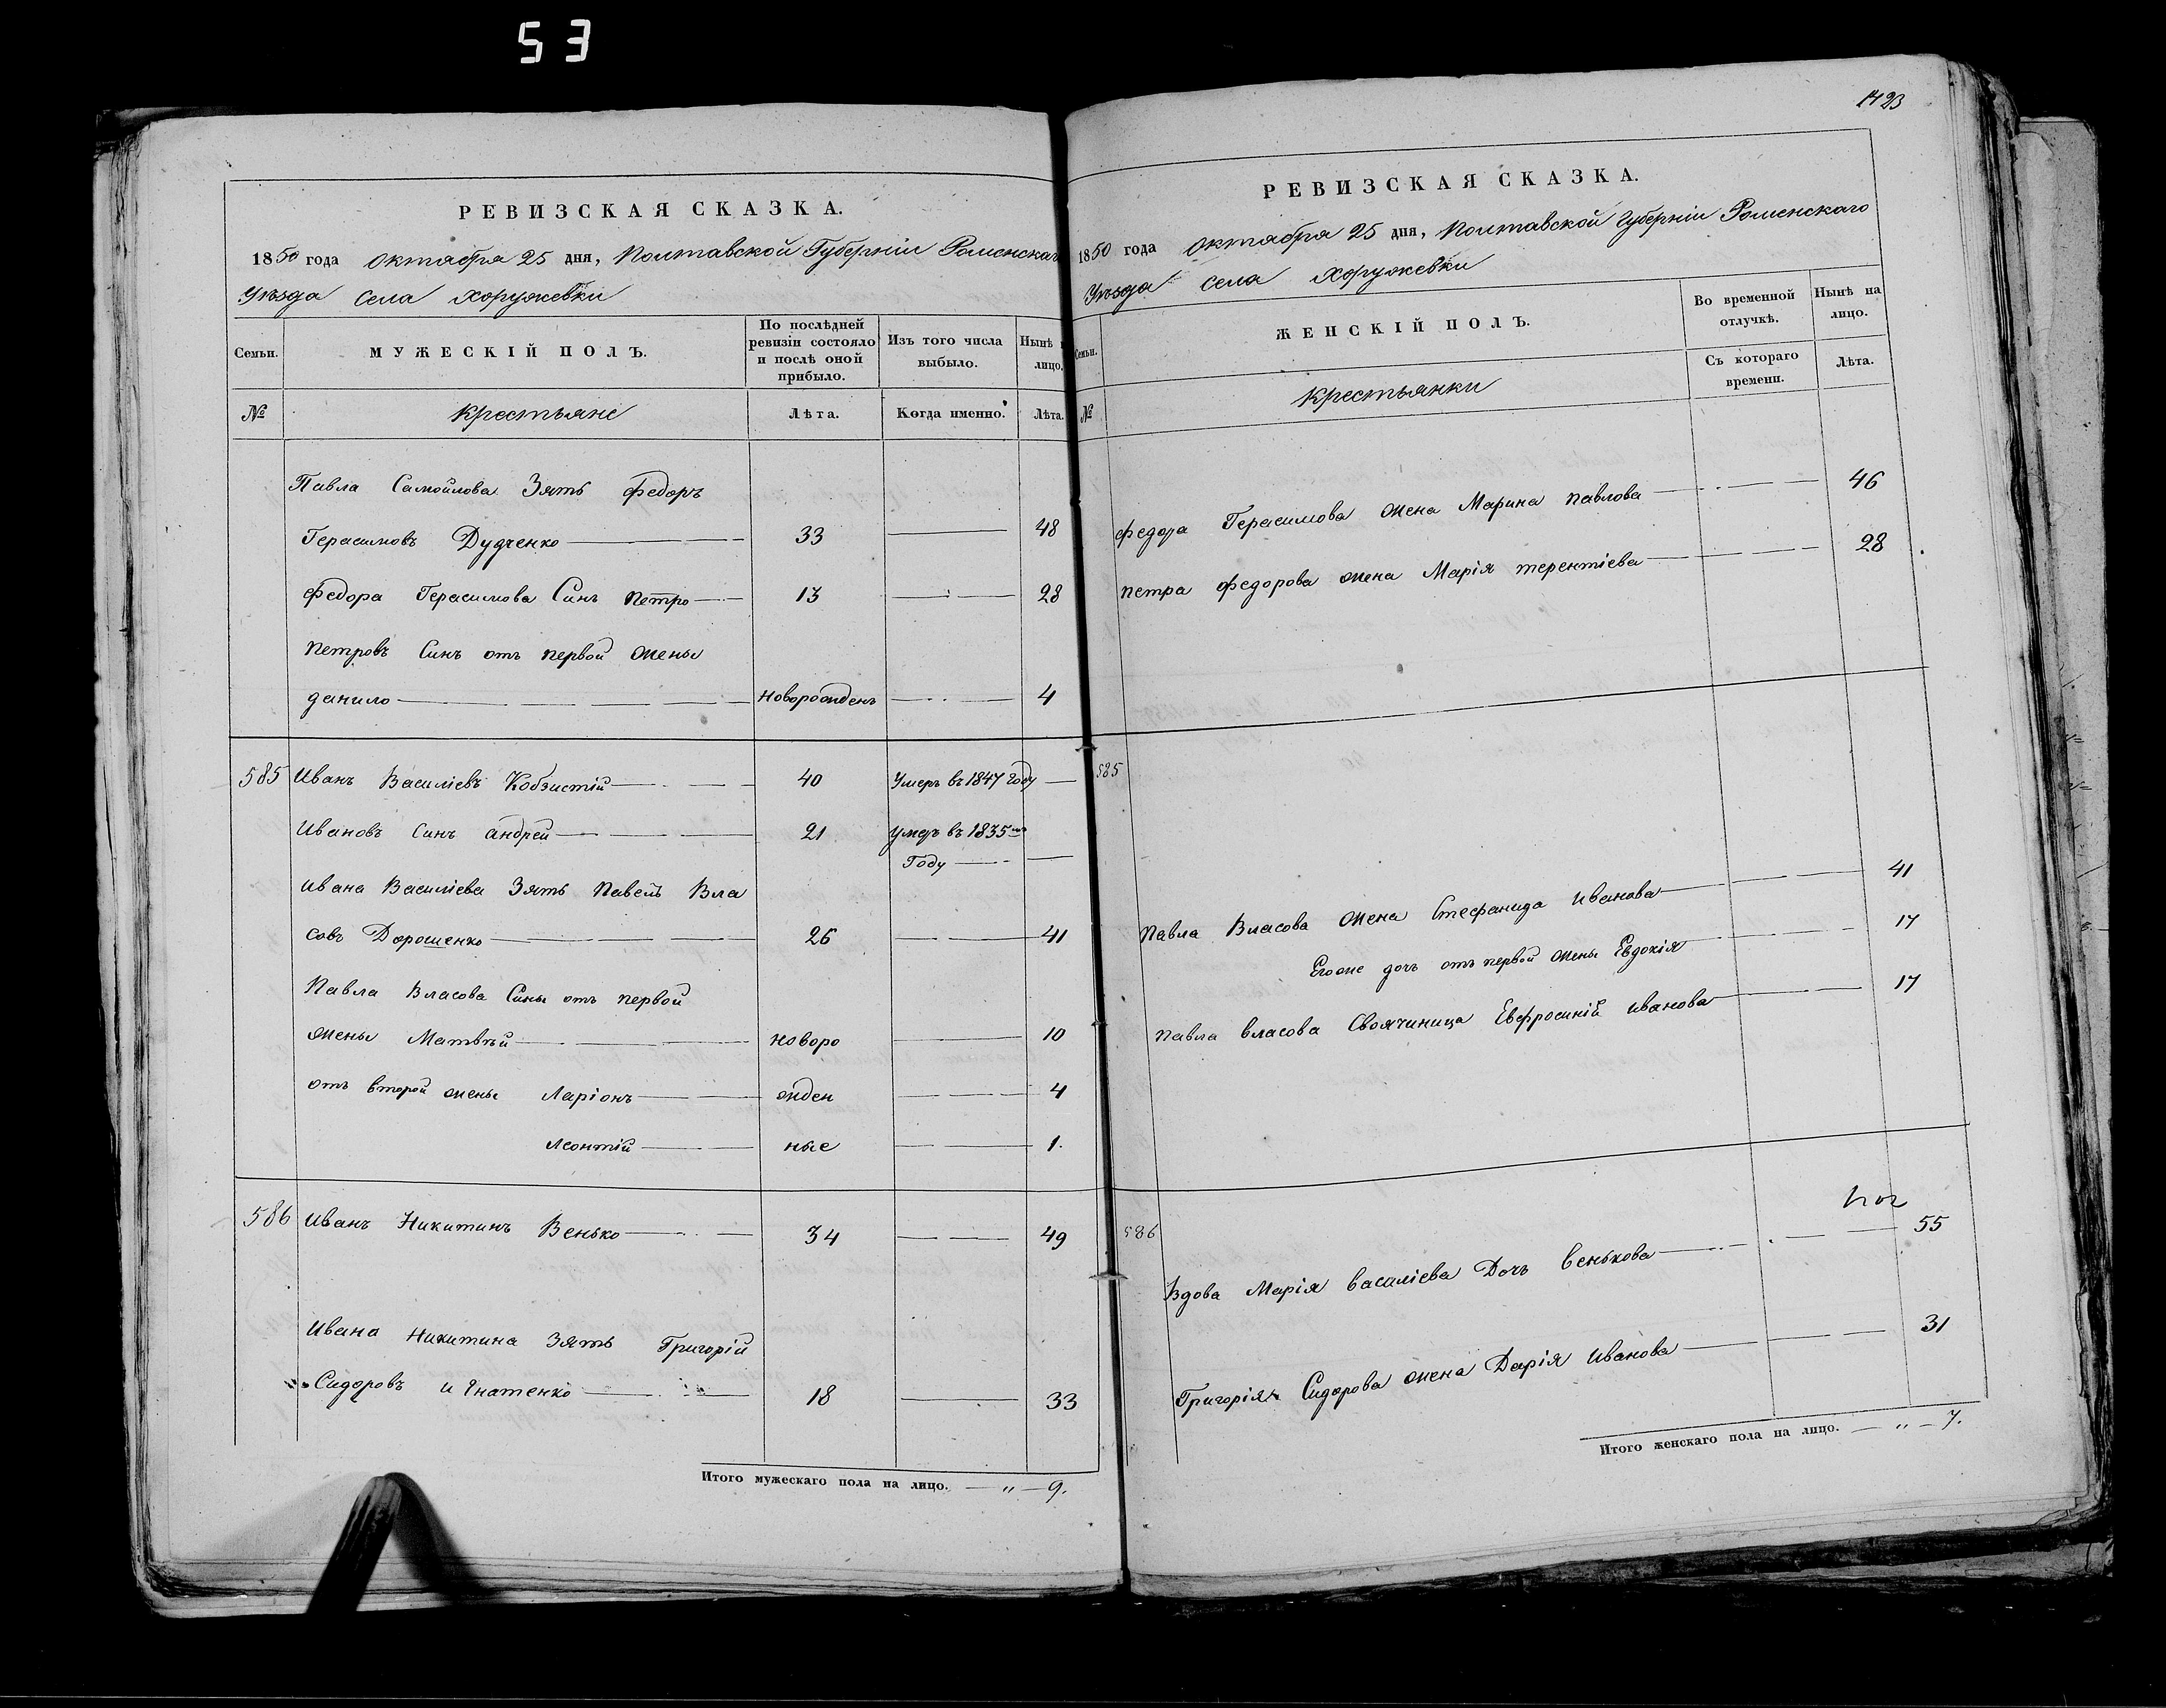 53
РЕВИЗСКАЯ СКАЗКА.
1850 года Октября 25 дня, Полтавской Губерніи Роменскаго
Уѣзда Села Хоружевки
Семьи.
МУЖЕСКІЙ ПОЛЪ.
По послѣдней ревизіи состояло и послѣ оной прибыло.
Изъ того числа выбыло.
Нынѣ
лицо.
№
Крестьяне
Лѣта.
Когда именно.
Лѣта.
Павла Самойлова Зять Федоръ
Герасимовъ Дудченко 33 48
Федора Герасимова Синъ Петро 13 28
Петровъ Синъ отъ первой жены
Данило Новорожденъ 4
585 Иванъ Василіевъ Кобзистій 40 Умеръ въ 1847 Году
Ивановъ Синъ Андрей 21 умеръ въ 1835мъ
Году
Ивана Василіева Зять Павелъ Вла
совъ Дорошенко 26 41
Павла Власова Сины отъ первой
жены Матвѣй новоро 10
отъ второй жены Ларіонъ жден 4
Леонтій ные 1.
586 Иванъ Никитинъ Венько 34 49
Ивана Никитина Зять Григорій
Сидоровъ Игнатенко 18 33
Итого мужескаго пола на лицо. — „ — 9.
РЕВИЗСКАЯ СКАЗКА.
1850 года Октября 25 дня, Полтавской Губерніи Роменскаго
Уѣзда Села Хоружевки
Семьи.
ЖЕНСКІЙ ПОЛЪ.
Во временной отлучкѣ.
Нынѣ на лицо.
Съ котораго времени.
Лѣта.
№
Крестьянки
Федора Герасимова жена Марина Павлова 46
Петра Федорова жена Марія Терентіева 28
585
Павла Власова жена Стефанида Иванова 41
Егоже дочъ отъ первой жены Евдокія 17
Павла Власова Своячиница Евфросиній Иванова 17
586
Вдова Марія Василіева Дочъ Венькова 55
Григорія Сидорова жена Дарія Иванова 31
Итого женскаго пола на лицо. — „ — 7.